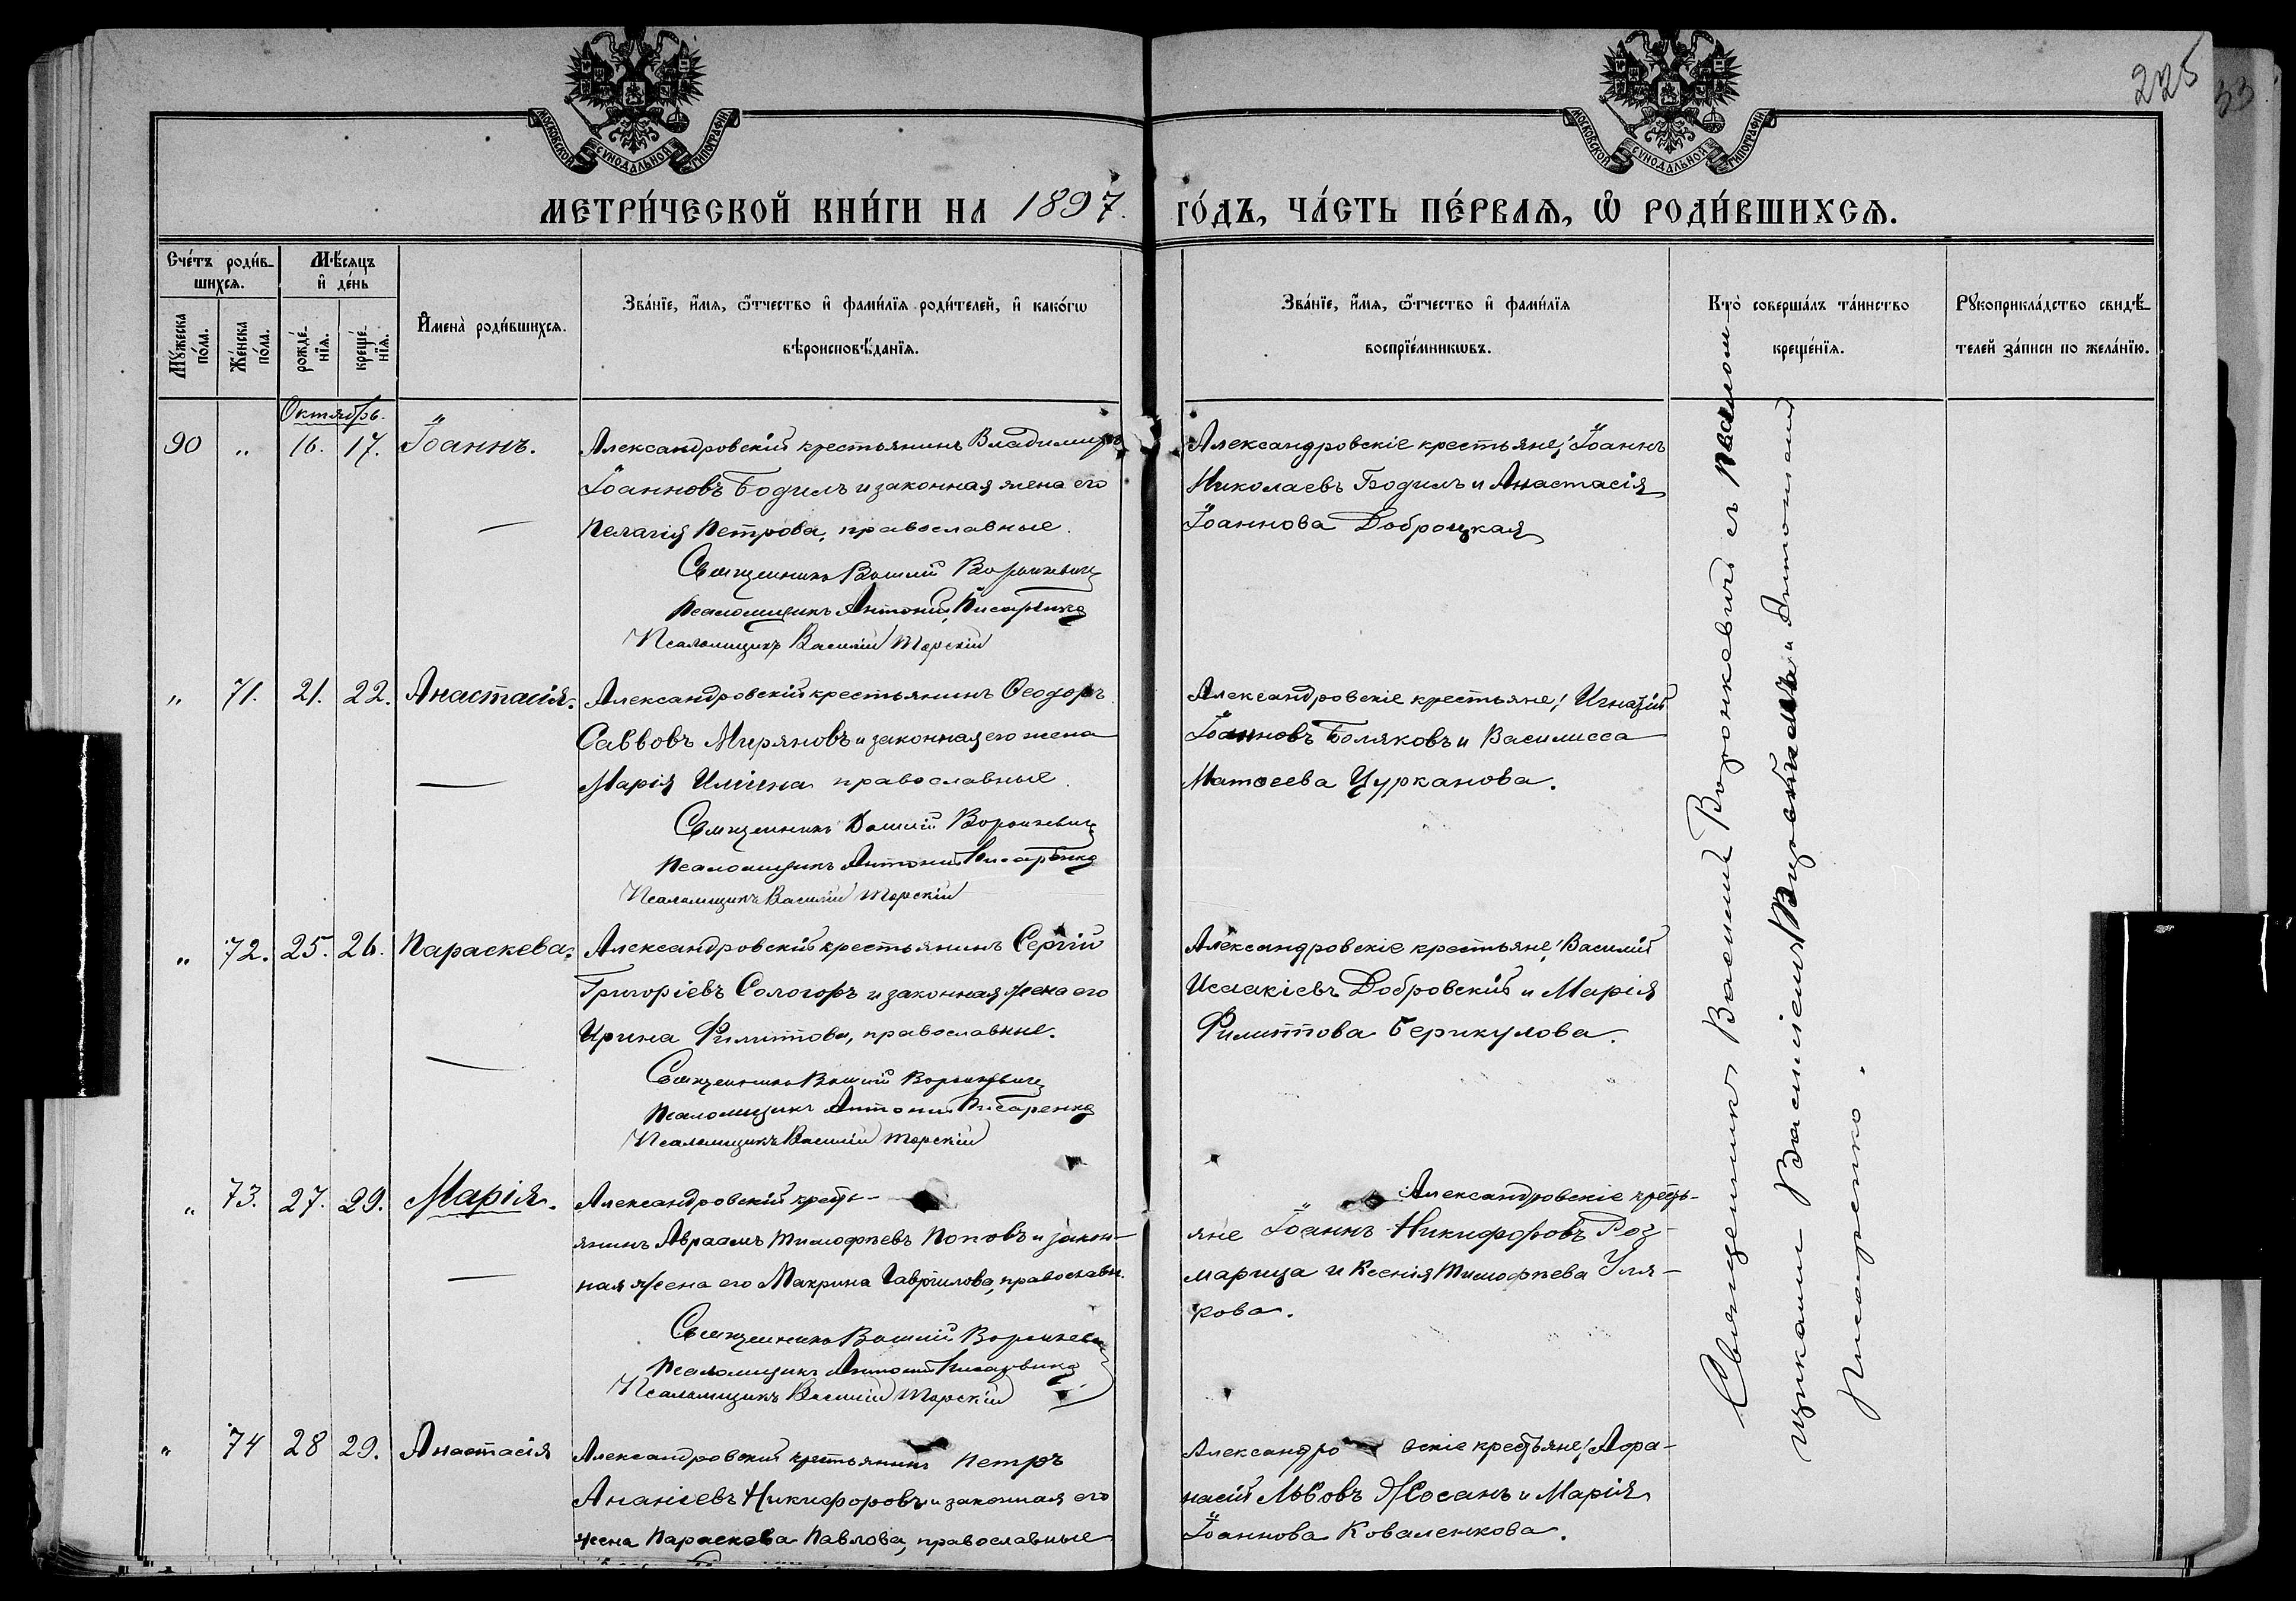 225
33
МОСКОВСКОЙ СѴНОДАЛЬНОЙ ТИПОГРАФІИ
МОСКОВСКОЙ СѴНОДАЛЬНОЙ ТИПОГРАФІИ
МЕТРИ́ЧЕСКОЙ КНИ́ГИ НА 1897. ГО́ДЪ, ЧА́СТЬ ПЕ́РВАѦ, Ѽ РОДИ́ВШИХСѦ.
Сче́тъ роди́в-
шихсѧ.
Мꙋ́жеска по́ла.
Же́нска по́ла.
Мѣ́сѧцъ
и҆ де́нь
рожде́-нїѧ.
креще́-нїѧ.
И҆мена̀ роди́вшихсѧ.
Зва́нїе, и҆́мѧ, ѻ҆́тчество и҆ фами́лїѧ роди́телей, и҆ како́гѡ
вѣроисповѣ́данїѧ.
Зва́нїе, и҆́мѧ, ѻ҆́тчество и҆ фами́лїѧ
воспрїе́мникѡвъ.
Кто̀ соверша́лъ та́инство
креще́нїѧ.
Рꙋкоприкла́дство свидѣ́-
телей за́писи по жела́нїю.
Октябрь.
90 " 16. 17. Іоаннъ.
Александровскій крестьянинъ Владимиръ
Іоанновъ Бодиль и законная жена его
Пелагія Петрова, православные.
Священникъ Василій Воронкевичъ
Псаломщикъ Антоній Писаренко
Псаломщикъ Василій Торскій
Александровскіе крестьяне: Іоаннъ
Николаевъ Бодиль и Анастасія
Іоаннова Доброцкая
" 71. 21. 22. Анастасія.
Александровскій крестьянинъ Ѳеодоръ
Саввовъ Миряновъ и законная его жена
Марія Иліина православные.
Священникъ Василій Воронкевичъ
Псаломщикъ Антоній Писаренко
Псаломщикъ Василій Торскій
Александровскіе крестьяне: Игнатій
Іоанновъ Боляковъ и Василисса
Матѳеева Цурканова.
" 72. 25. 26. Параскева.
Александровскій крестьянинъ Сергій
Григоріевъ Сологоръ и законная жена его
Ирина Филиппова, православные.
Священникъ Василій Воронкевичъ
Псаломщикъ Антоній Писаренко
Псаломщикъ Василій Торскій
Александровскіе крестьяне: Василій
Исаакіевъ Добровскій и Марія
Филиппова Берикулова.
" 73. 27. 29. Марія.
Александровскій кресть-
янинъ Авраамъ Тимофѣевъ Поповъ и закон-
ная жена его Макрина Гавріилова, православн.
Священникъ Василій Воронкевичъ
Псаломщикъ Антоній Писаренко
Псаломщикъ Василій Торскій
Александровскіе кресть-
яне Іоаннъ Никифоровъ Роз-
марица и Ксенія Тимофѣева Уля-
кова.
" 74 28 29. Анастасія
Александровскій крестьянинъ Петръ
Ананіевъ Никифоровъ и законная его
жена Параскева Павлова, православные
Александровскіе крестьяне: Аѳа-
насій Львовъ Жосанъ и Марія
Іоаннова Коваленкова.
Священникъ Василій Воронкевичъ съ псалом-
щиками Василіемъ и Антоніемъ
Писаренко.